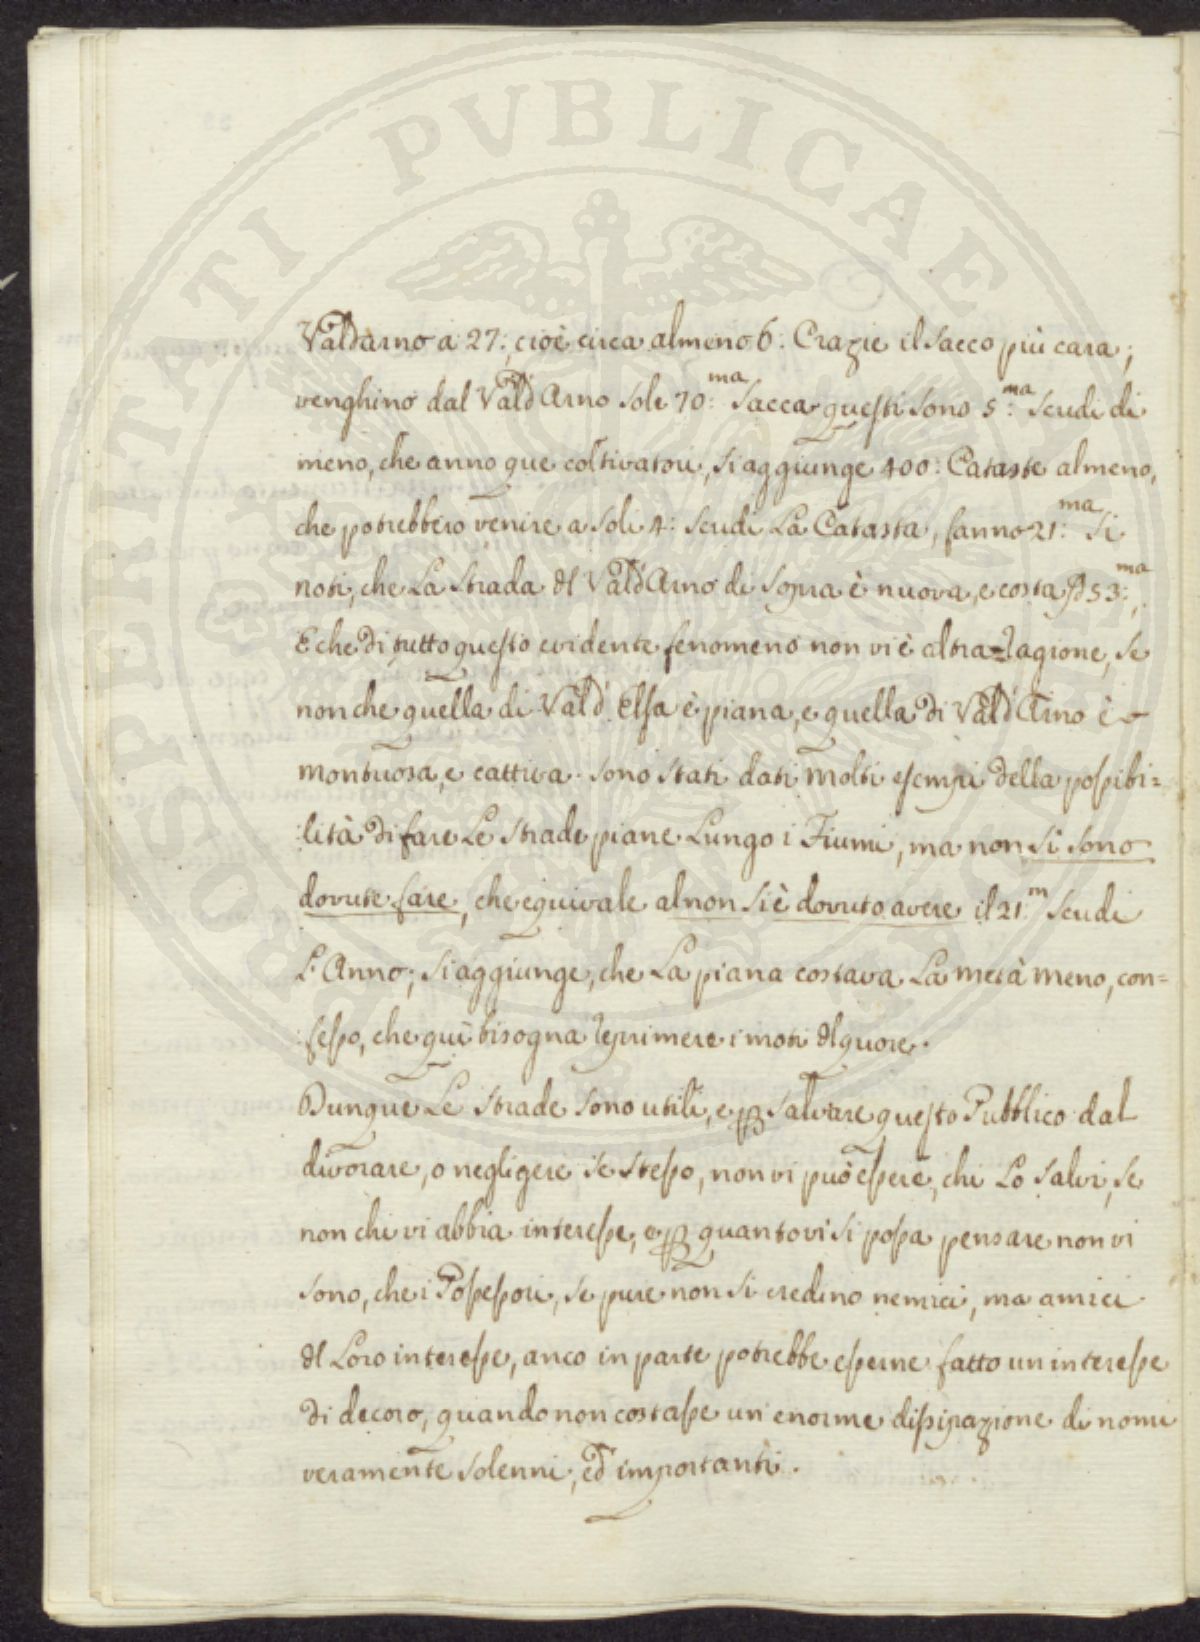 PROSPERITATI PVBLICAE
Valdarno a 27:, cioè circa almeno 6: Crazie il Sacco più cara;
venghino dal Vald'Arno sole 70:ma Sacca questi sono 5:ma Scudi di
meno, che anno que coltivatori, si aggiunge 400: Cataste almeno,
che potrebbero venire a soli 4: Scudi La Catasta, fanno 21:ma Si
noti, che La Strada dl Vald'Arno di Sopra è nuova, e costa 53:ma,
E che di tutto questo evidente fenomeno non vi è altra ragione, se
non che quella di Vald'Elsa è piana, e quella di Vald'Arno è
montuosa, e cattiva. Sono stati dati molti esempi della possibi=
:lità di fare Le Strade piane Lungo i Fiumi, ma non si sono
dovute fare, che equivale al non si è dovuto avere il 21:m Scudi
L'Anno; si aggiunge, che La piana costava La metà meno, con=
:fesso, che quì bisogna reprimere i moti dl quore.
Dunque Le Strade sono utili, e p salvare questo Pubblico dal
divorare, o negligere se stesso, non vi può essere, chi Lo salvi, se
non chi vi abbia interesse, e p quanto vi si possa pensare non vi
sono, che i Possessori, se pure non si credino nemici, ma amici
dl Loro interesse, anco in parte potrebbe esserne fatto un interesse
di decoro, quando non costasse un enorme dissipazione di nomi
veramente solenni, ed importanti.